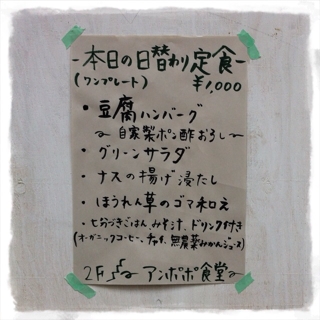 -本日の日替わり定食-
(ワンプレート) ¥1,000
・豆腐ハンバーグ
〜自家製ポン酢おろし〜
・グリーンサラダ
・ナスの揚げ浸たし
・ほうれん草のゴマ和え
ごはん、みそ汁、ドリンク付き
(オーガニックコーヒー、無農薬みかんジュース)
2F アンポポ食堂